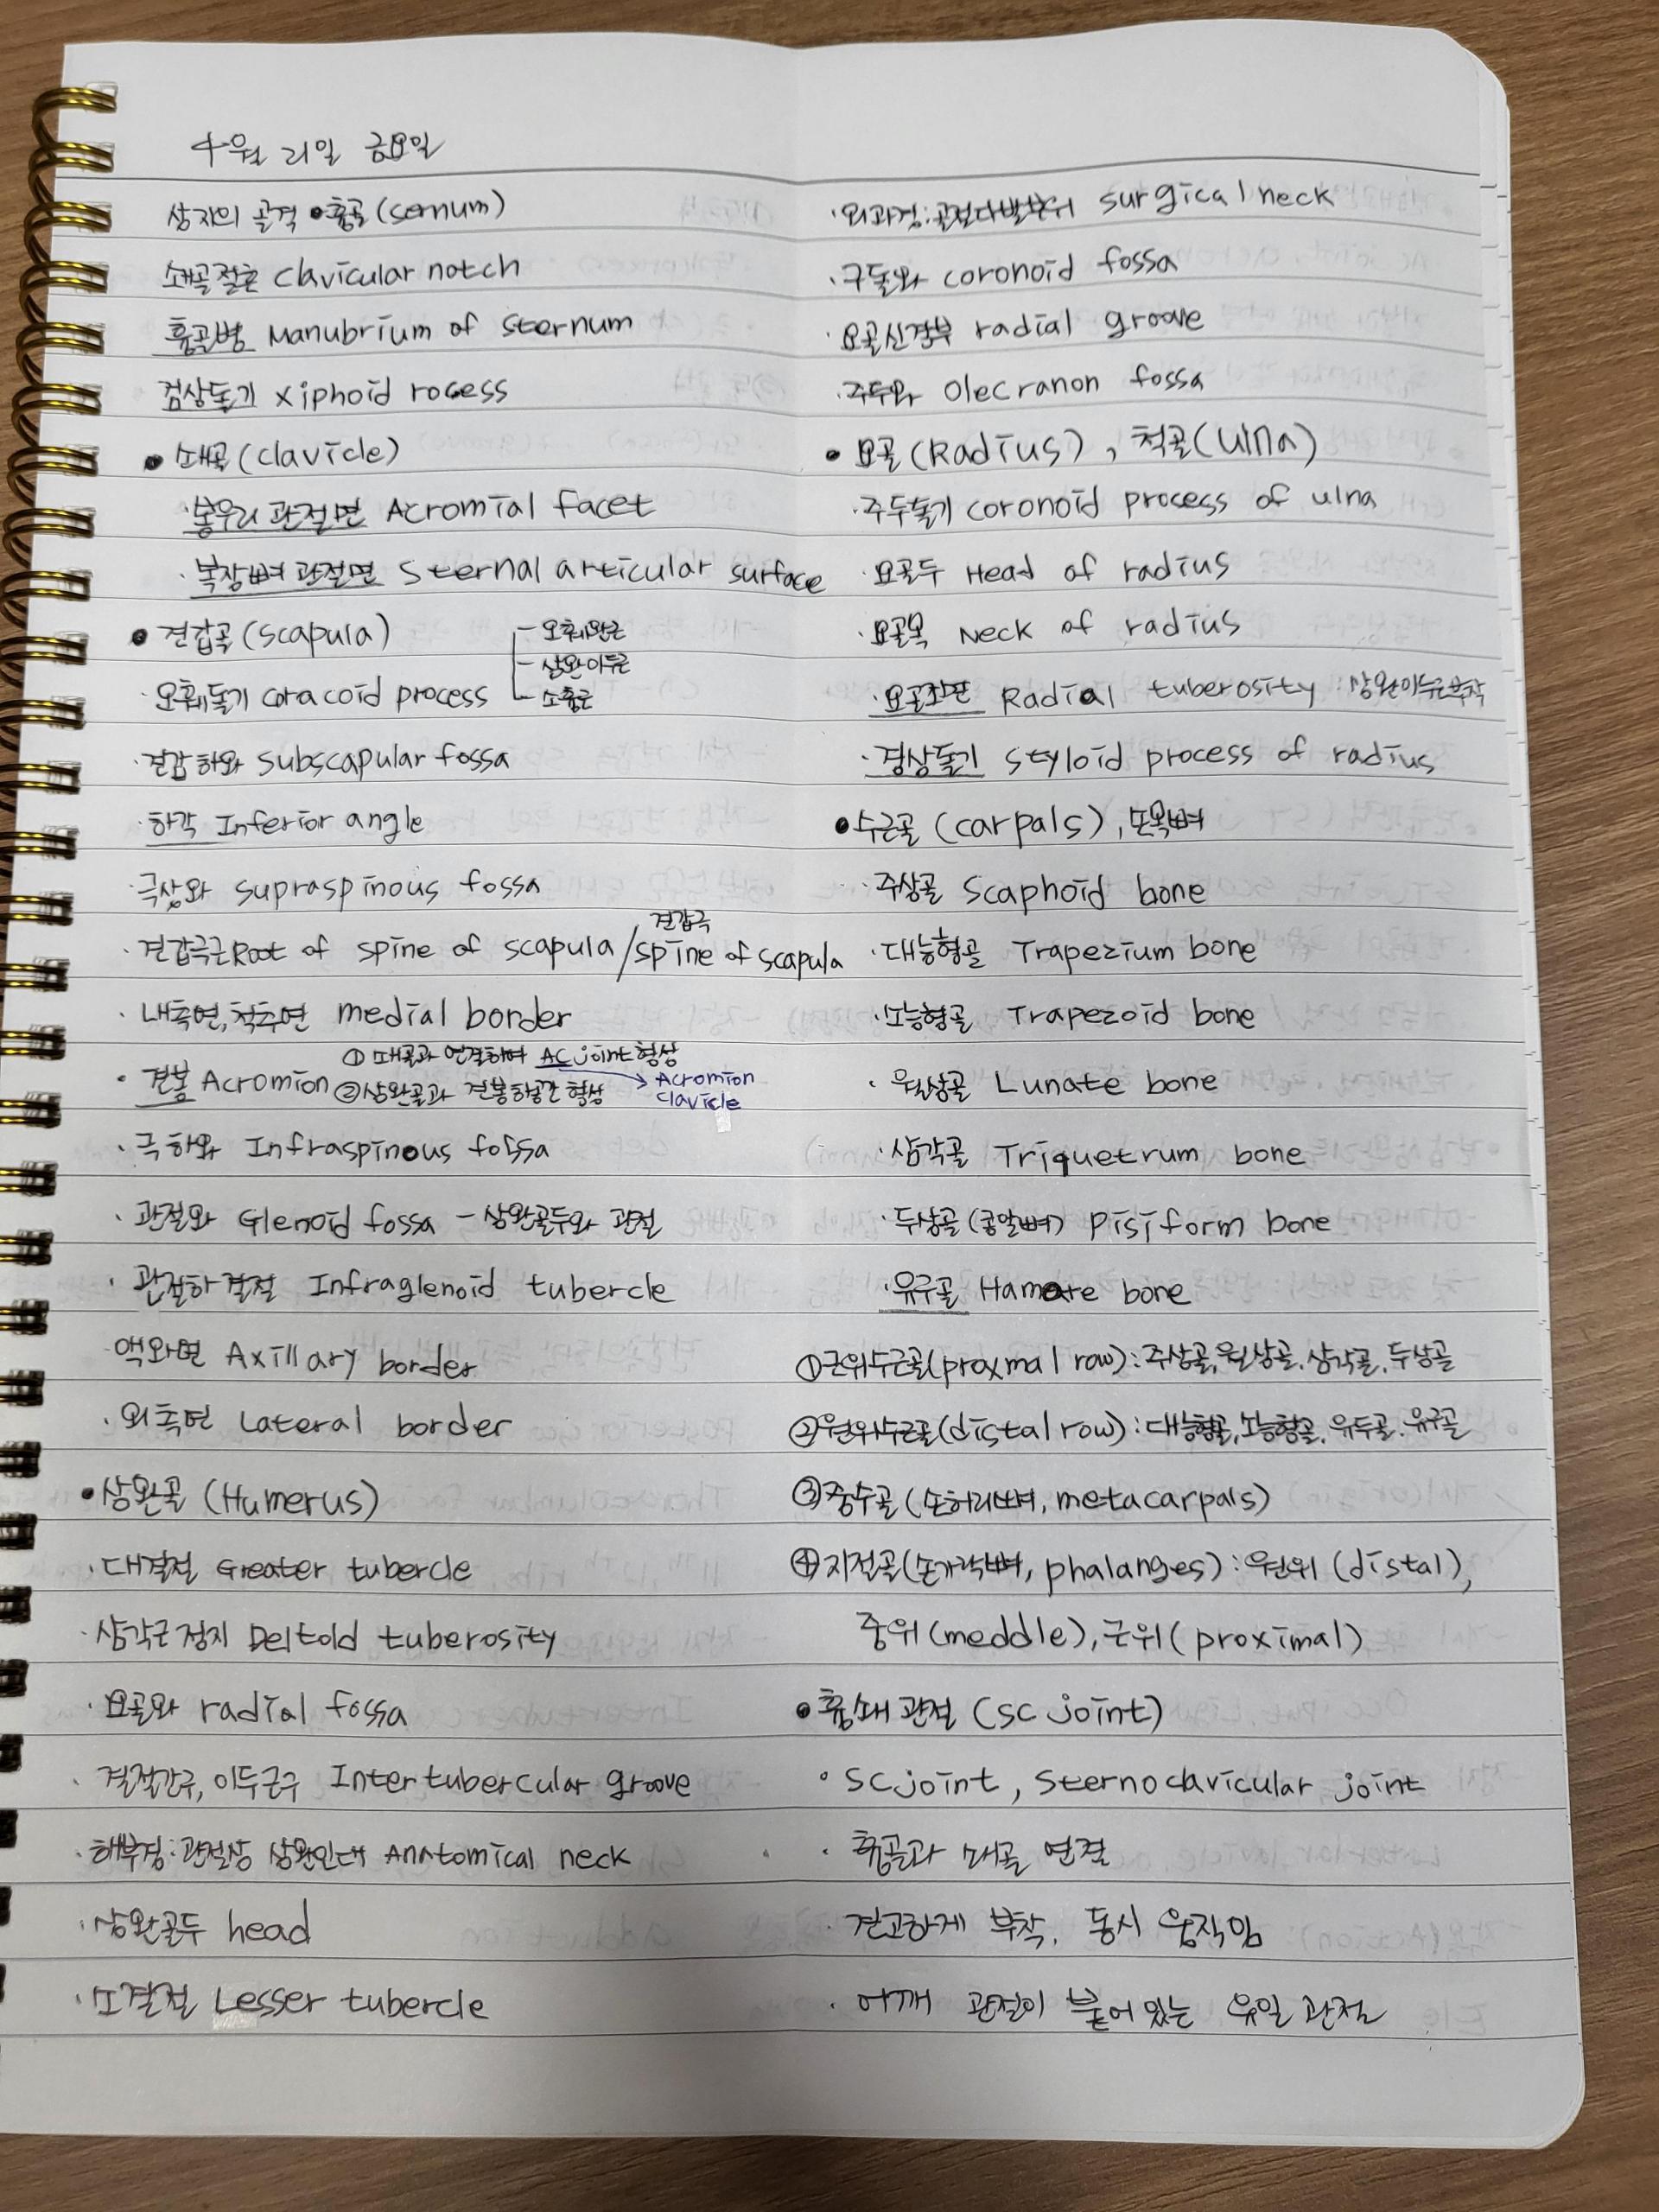 4월 21일 금요일
상지의 골격 •흉골(sernum)
쇄골절흔 clavicular notch
흉골병 Manubrium of sternum
검상돌기 xiphoid rocess
• 쇄골(clavicle)
·봉우리 관절면 Acromial facet
·복장뼈 관절면 Sternal articular surface
• 견갑골(scapula)
- 오훼완근
- 상완이두근
- 소흉근
·오훼돌기 coracoid process
·견갑하와 subscapular fossa
·하각 Inferior angle
·극상와 supraspinous fossa
견갑극
·견갑극근 Root of spine of scapula / spine of scapula
·내측연, 척추연 medial border
① 쇄골과 연결하여 AC joint 형성
·견봉 Acromion ②상완골과 견봉하공간 형성 → Acromion
clavicle
·극하와 Infraspinous fossa
·관절와 Glenoid fossa - 상완골두와 관절
·관절하 결절 Infraglenoid tubercle
·액와면 Axillary border
·외측면 Lateral border
•상완골 (Humerus)
·대결절 Greater tubercle
·삼각근 정지 Deltoid tuberosity
·요골와 radial fossa
·결절간구, 이두근구 Intertubercular groove
·해부경:관절상 상완인대 Anatomical neck
·상완골두 head
·소결절 Lesser tubercle
·외과경:골절다발부위 surgical neck
·구돌와 coronoid fossa
·요골신경부 radial groove
·주두와 Olecranon fossa
• 요골(Radius), 척골(Ulna)
·주두돌기 coronoid process of ulna
·요골두 Head of radius
·요골목 Neck of radius
·요골조면 Radial tuberosity : 상완이두근부착
·경상돌기 styloid process of radius
•수근골 (carpals), 손목뼈
·주상골 Scaphoid bone
·대능형골 Trapezium bone
·소능형골 Trapezoid bone
·월상골 Lunate bone
·삼각골 Triquetrum bone
·두상골(콩알뼈) pisiform bone
·유구골 Hamate bone
①근위수근골(proxmal row): 주상골, 월상골, 삼각골, 두상골
②원위수근골(distal row): 대능형골, 소능형골, 유두골, 유구골
③중수골(손허리뼈, metacarpals)
④지절골(손가락뼈, phalanges): 원위(distal),
중위(meddle), 근위(proximal)
•흉쇄관절 (SC joint)
·SC joint, sternoclavicular joint
·흉골과 쇄골 연결
·견고하게 부착, 동시 움직임
·어깨 관절이 붙어있는 유일 관절